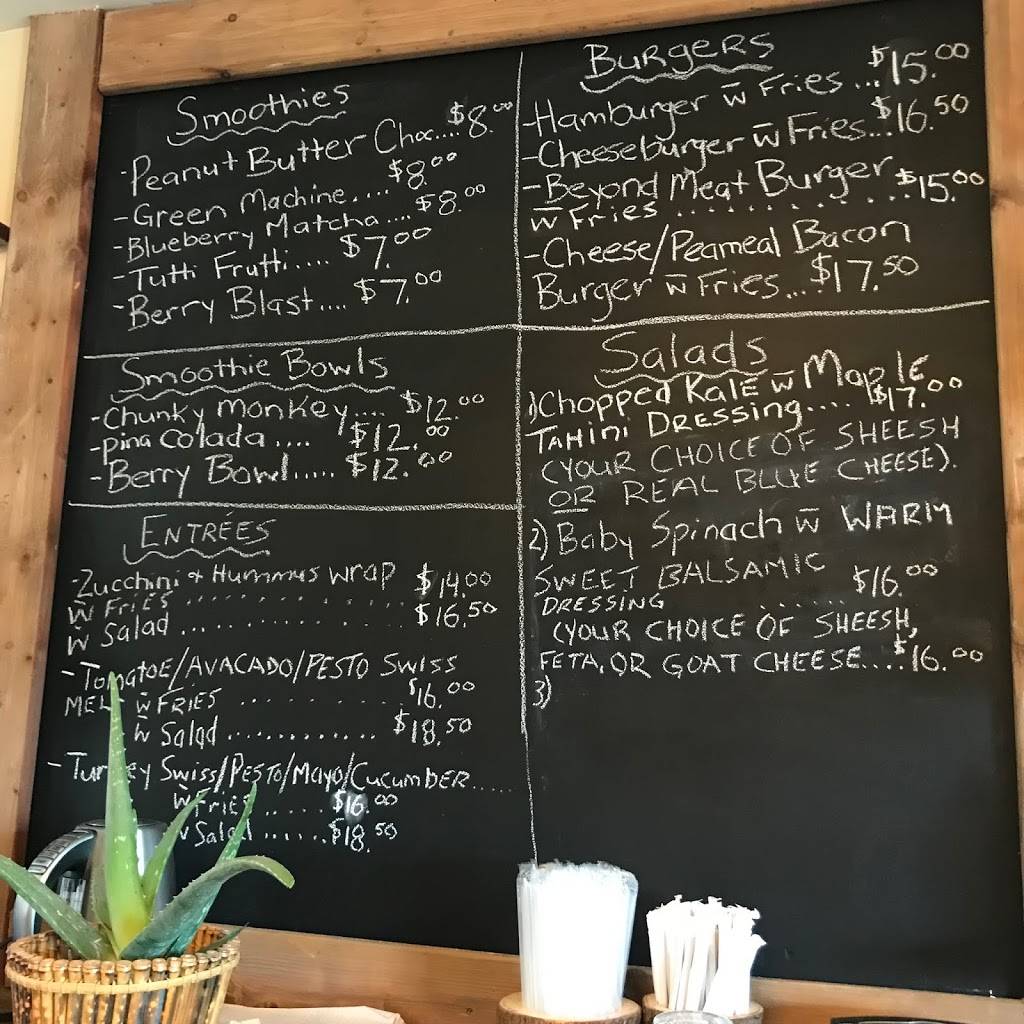 Smoothies
-Peanut Butter Choc....$8.00
-Green Machine.....$8.00
-Blueberry Matcha....$8.00
-Tutti Frutti.....$7.00
-Berry Blast....$7.00
Smoothie Bowls
-Chunky Monkey....$12.00
-Pina Colada....$12.00
-Berry Bowl.....$12.00
ENTRÉES
-Zucchini & Hummus Wrap
w̄ Fries..............$14.00
w̄ Salad..............$16.50
-Tomatoe/AVACADO/PESTO SWISS
MELT w̄ FRIES..........$16.00
w̄ Salad.............$18.50
-Turkey Swiss/PESTO/Mayo/CucumBER.....
w̄ FRIES.....$16.00
w Salad......$18.50
BURGERS
-Hamburger w̄ Fries...$15.00
-Cheeseburger w̄ Fries...$16.50
-Beyond Meat Burger
w̄ Fries............$15.00
-Cheese/Peameal Bacon
Burger w̄ Fries...$17.50
Salads
1)Chopped KALE w̄ MAPLE
TAHINI DRESSING....$17.00
(YOUR CHOICE OF SHEESH
OR REAL BLUE CHEESE).
2)Baby Spinach w̄ WARM
SWEET BALSAMIC
DRESSING.......$16.00
(YOUR CHOICE OF SHEESH,
FETA, OR GOAT CHEESE....$16.00
3)